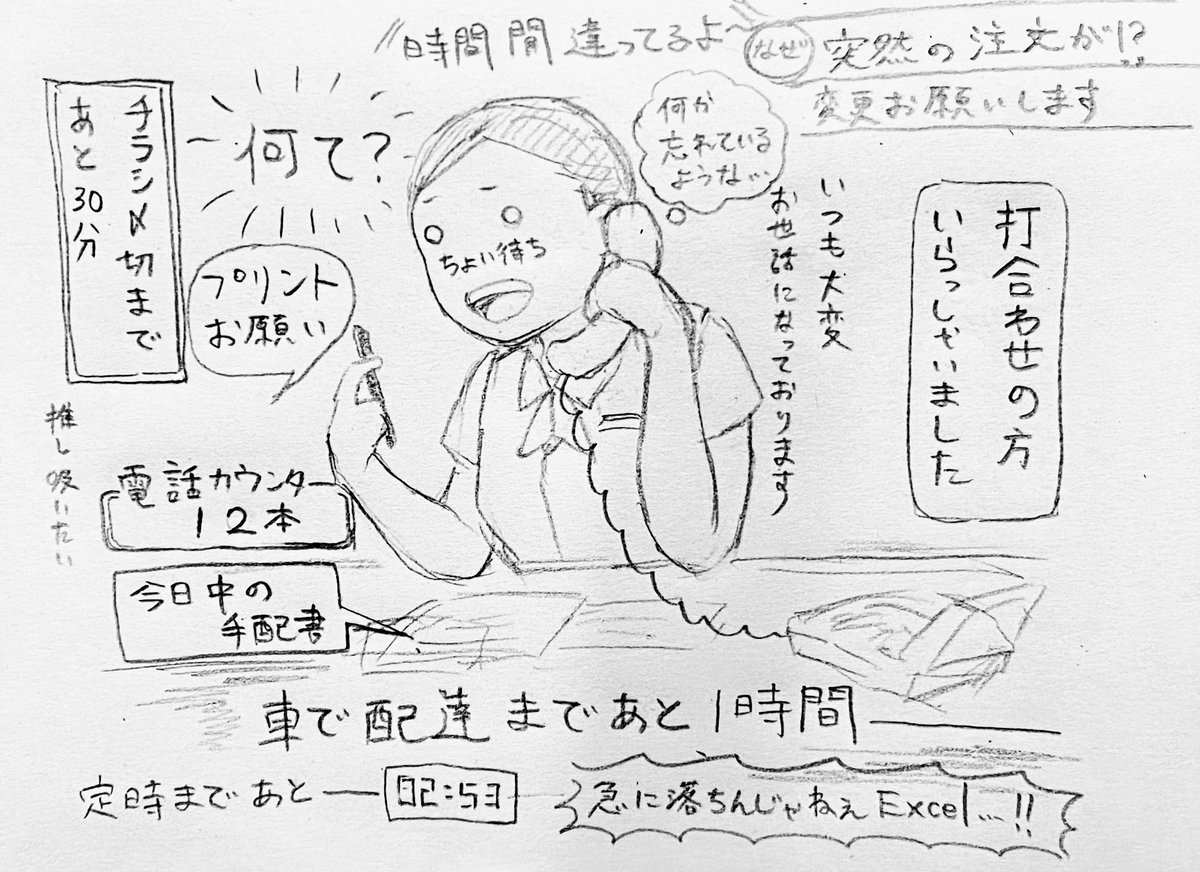 時間間違ってるよ〜
なぜ
突然の注文が!?
変更お願いします
チラシ〆切まで
あと30分
何て?
何か
忘れている
ような…
ちょい待ち
プリント
お願い
いつも大変
お世話になっております
打合わせの方
いらっしゃいました
推し吸いたい
電話カウンター
12本
今日中の
手配書
車で配達まであと1時間
定時まであと
02:53
急に落ちんじゃねぇExcel…!!